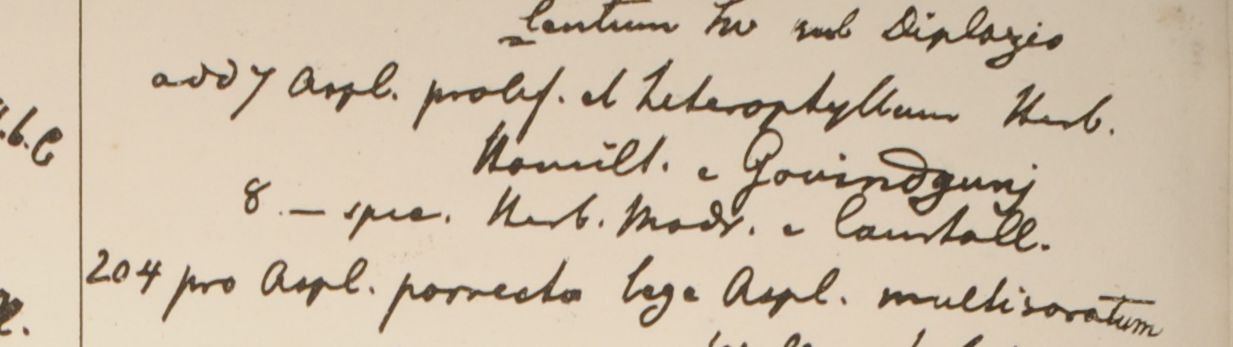 lentum Hw sub Diplazio
add 7 Aspl. prolif. et heterophyllum Herb.
Hamilt. e Govindgunj
8. — spec. Herb. Madr. e Courtall.
204 pro Aspl. porrecto lege Aspl. multisoratum